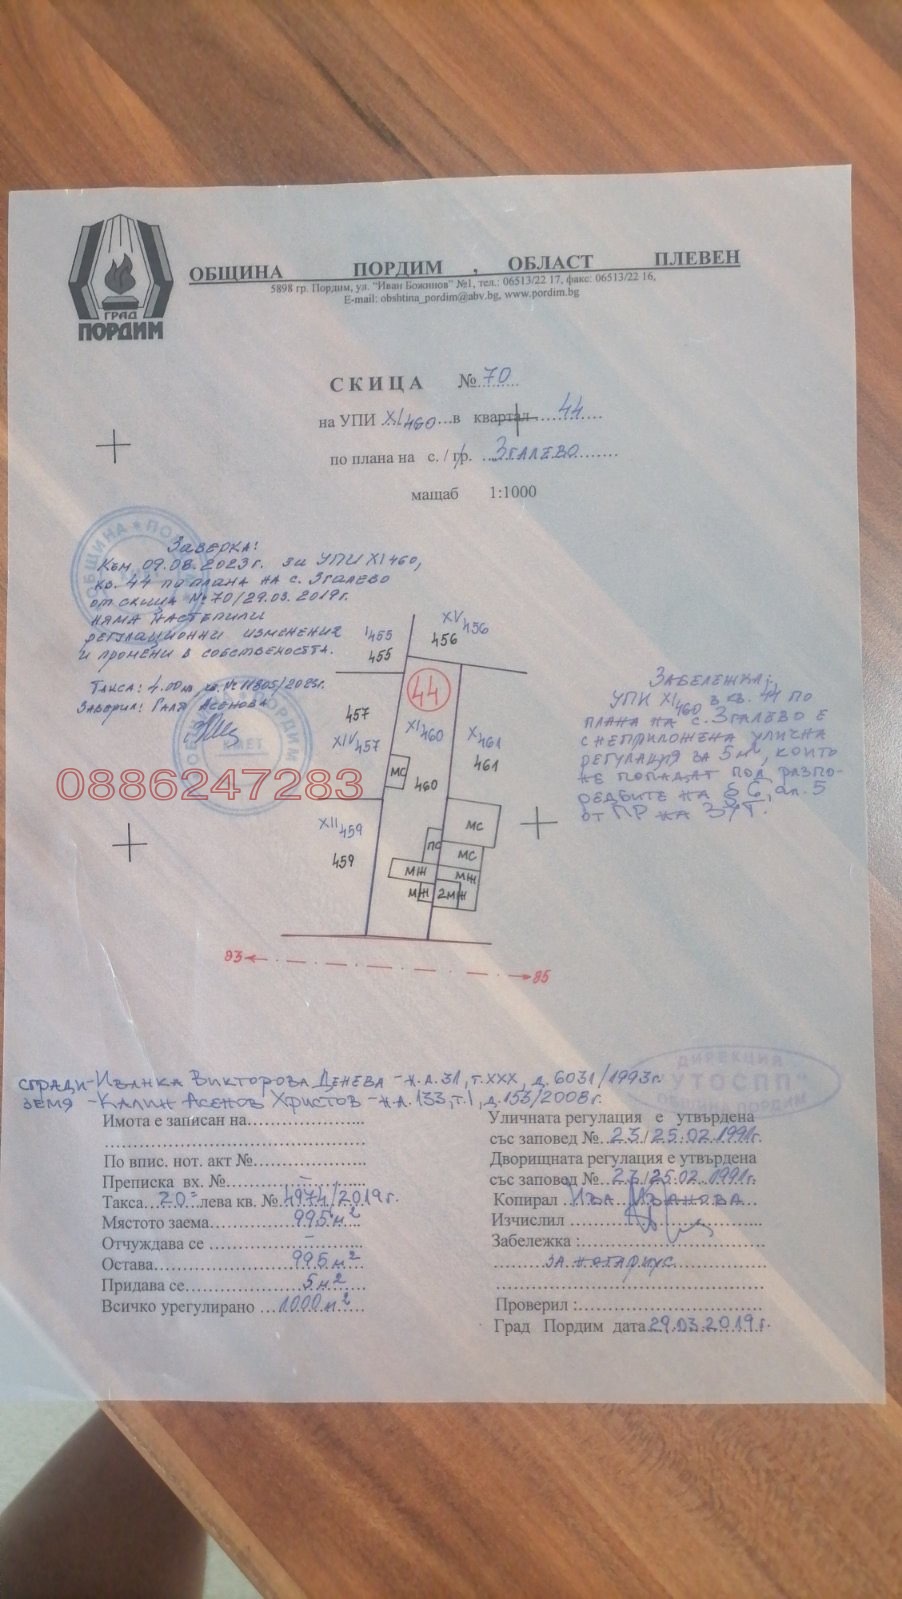 ГРАД
ПОРДИМ
ОБЩИНА ПОРДИМ , ОБЛАСТ ПЛЕВЕН
5898 гр. Пордим, ул. "Иван Божинов" №1, тел.: 06513/22 17, факс: 06513/22 16,
E-mail: obshtina_pordim@abv.bg, www.pordim.bg
СКИЦА № 70
на УПИ XI460 в квартал 44
по плана на с. / гр. Згалево
мащаб 1:1000
Заверка:
Към 09.08.2023г. за УПИ XI460,
кв. 44 по плана на с. Згалево
от скица № 70/29.03.2019г.
няма настъпили
регулационни изменения
и промени в собствеността.
Такса: 4.00лв, кв. № 11805/2023г.
Заверил: Галя Асенова
ОБЩИНА ПОРДИМ
КМЕТ
0886247283
I455
455
XV456
456
44
457
XIV457
XI460
460
X461
461
МС
XII459
459
МС
ПС
МС
МЖ
МЖ
МЖ
2МЖ
83
85
Забележка:
УПИ XI460 в кв. 44 по
плана на с. Згалево е
с неприложена улична
регулация за 5м², които
не попадат под разпо-
редбите на § 6, ал. 5
от ПР на ЗУТ.
ДИРЕКЦИЯ
"УТОСПП"
ОБЩИНА ПОРДИМ
сгради - Иванка Викторова Денева - н.а. 31, т. XXX, д. 6031/1993г.
земя - Калин Асенов Христов - н.а. 133, т. I, д. 153/2008г.
Имота е записан на
По впис. нот. акт №
Преписка вх. № –
Такса 20 лева кв. № 4974/2019г.
Мястото заема 995м²
Отчуждава се –
Остава 995м²
Придава се 5м²
Всичко урегулирано 1000м²
Уличната регулация е утвърдена
със заповед № 23/25.02.1991г.
Дворищната регулация е утвърдена
със заповед № 23/25.02.1991г.
Копирал Ива Иванова
Изчислил
Забележка :
за нотариус
Проверил :
Град Пордим дата 29.03.2019г.